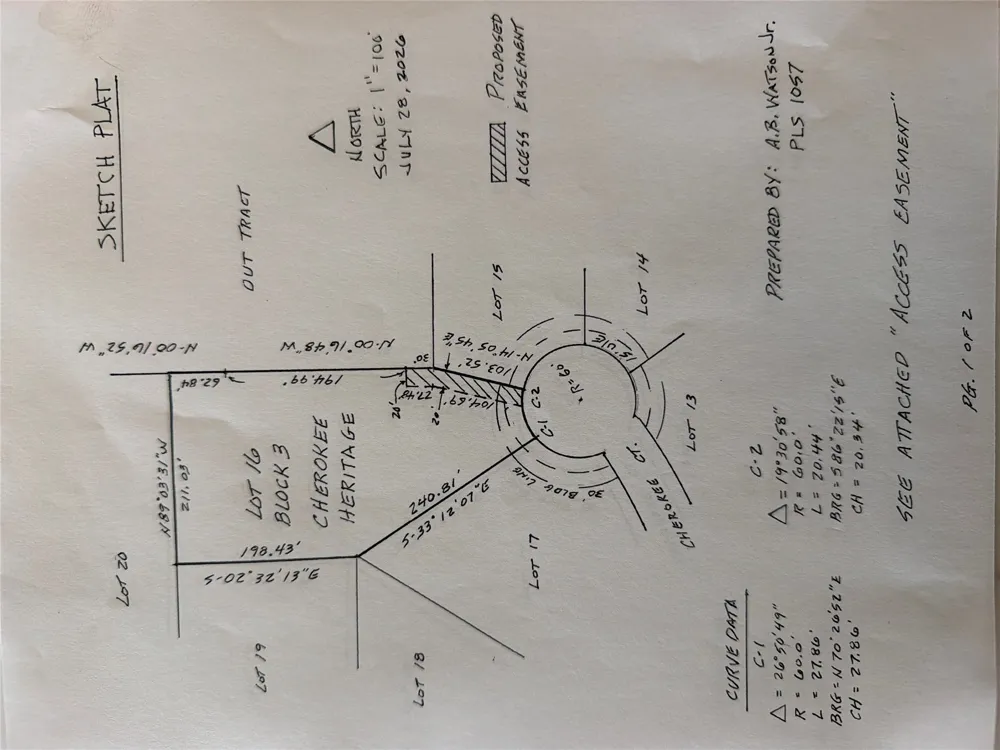 SKETCH PLAT
NORTH
SCALE: 1"=100'
JULY 28, 2026
PROPOSED
ACCESS EASEMENT
OUT TRACT
N-00°16'52"W
N-00°16'48"W
62.84'
194.99'
N89°03'31"W
211.03'
LOT 20
LOT 16
BLOCK 3
CHEROKEE
HERITAGE
198.43'
S-02°32'13"E
LOT 19
LOT 18
LOT 17
240.81'
S-33°12'07"E
30'
20'
27.48'
20'
104.69'
103.52'
N-14°05'45"E
LOT 15
LOT 14
LOT 13
C-1
C-2
R=60'
15' U/E
30' BLDG LINE
CHEROKEE CT.
CURVE DATA
C-1
Δ = 26°50'49"
R = 60.0'
L = 27.86'
BRG = N 70°26'52"E
CH = 27.86'
C-2
Δ = 19°30'58"
R = 60.0'
L = 20.44'
BRG = S 86°22'15"E
CH = 20.34'
PREPARED BY: A.B. WATSON Jr.
PLS 1057
SEE ATTACHED "ACCESS EASEMENT"
PG. 1 OF 2